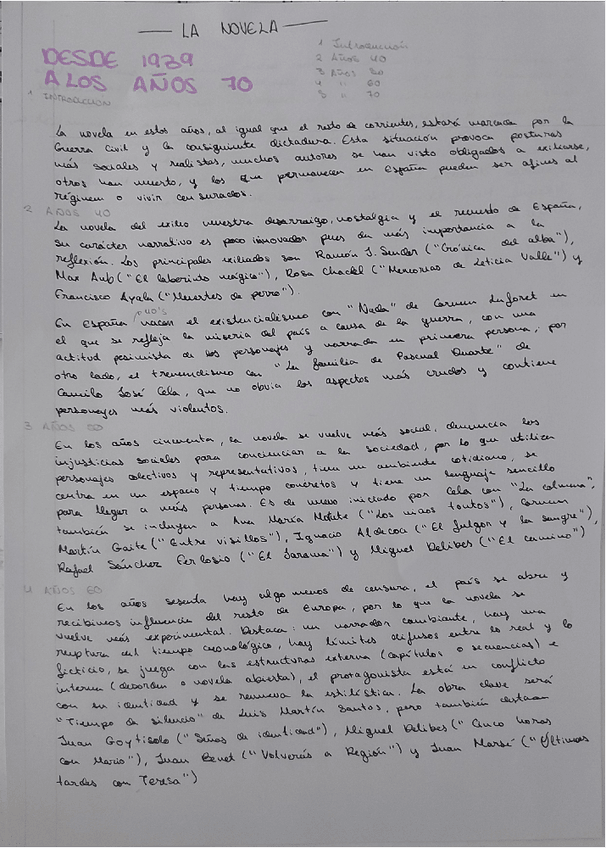 LA NOVELA
DESDE 1939
A LOS AÑOS 70
1 Introducción
2 Años 40
3 Años 50
4 " 60
5 " 70
1 INTRODUCCION
La novela en estos años, al igual que el resto de corrientes, estará marcada por la
Guerra Civil y la consiguiente dictadura. Esta situación provoca posturas
más sociales y realistas, muchos autores se han visto obligados a exiliarse,
otros han muerto, y los que permanecen en España pueden ser afines al
régimen o vivir censurados.
2 AÑOS 40
La novela del exilio muestra desarraigo, nostalgia y el recuerdo de España,
su carácter narrativo es poco innovador pues da más importancia a la
reflexión. Los principales exiliados son Ramón J. Sender ("Crónica del alba"),
Max Aub ("El laberinto mágico"), Rosa Chacel ("Memorias de Leticia Valle") y
Francisco Ayala ("Muertes de perro").
40's
En España nacen el existencialismo con "Nada" de Carmen Laforet en
el que se refleja la miseria del país a causa de la guerra, con una
actitud pesimista de los personajes y narrada en primera persona; por
otro lado, el tremendismo con "La familia de Pascual Duarte" de
Camilo José Cela, que no obvia los aspectos más crudos y contiene
personajes más violentos.
3 AÑOS 50
En los años cincuenta, la novela se vuelve más social, denuncia las
injusticias sociales para concienciar a la sociedad, por lo que utiliza
personajes colectivos y representativos, tiene un ambiente cotidiano, se
centra en un espacio y tiempo concretos y tiene un lenguaje sencillo
para llegar a más personas. Es de nuevo iniciado por Cela con "La colmena",
también se incluyen a Ana María Matute ("Los niños tontos"), Carmen
Martín Gaite ("Entre visillos"), Ignacio Aldecoa ("El fulgor y la sangre"),
Rafael Sánchez Ferlosio ("El Jarama") y Miguel Delibes ("El camino")
4 AÑOS 60
En los años sesenta hay algo menos de censura, el país se abre y
recibimos influencia del resto de Europa, por lo que la novela se
vuelve más experimental. Destaca: un narrador cambiante, hay una
ruptura del tiempo cronológico, hay límites difusos entre lo real y lo
ficticio, se juega con las estructuras externa (capítulos o secuencias) e
interna (desorden o novela abierta), el protagonista está en conflicto
con su identidad y se renueva la estilística. La obra clave será
"Tiempo de silencio" de Luis Martín Santos, pero también destacan
Juan Goytisolo ("Señas de identidad"), Miguel Delibes ("Cinco horas
con Mario"), Juan Benet ("Volverás a Región") y Juan Marsé ("Últimas
tardes con Teresa")